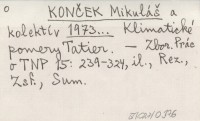 o KONČEK Mikuláš a
kolektív 1973... Klimatické
pomery Tatier. — Zbor. Prác
o TNP 15: 239-324, il., Rez.,
Zsf., Sum.